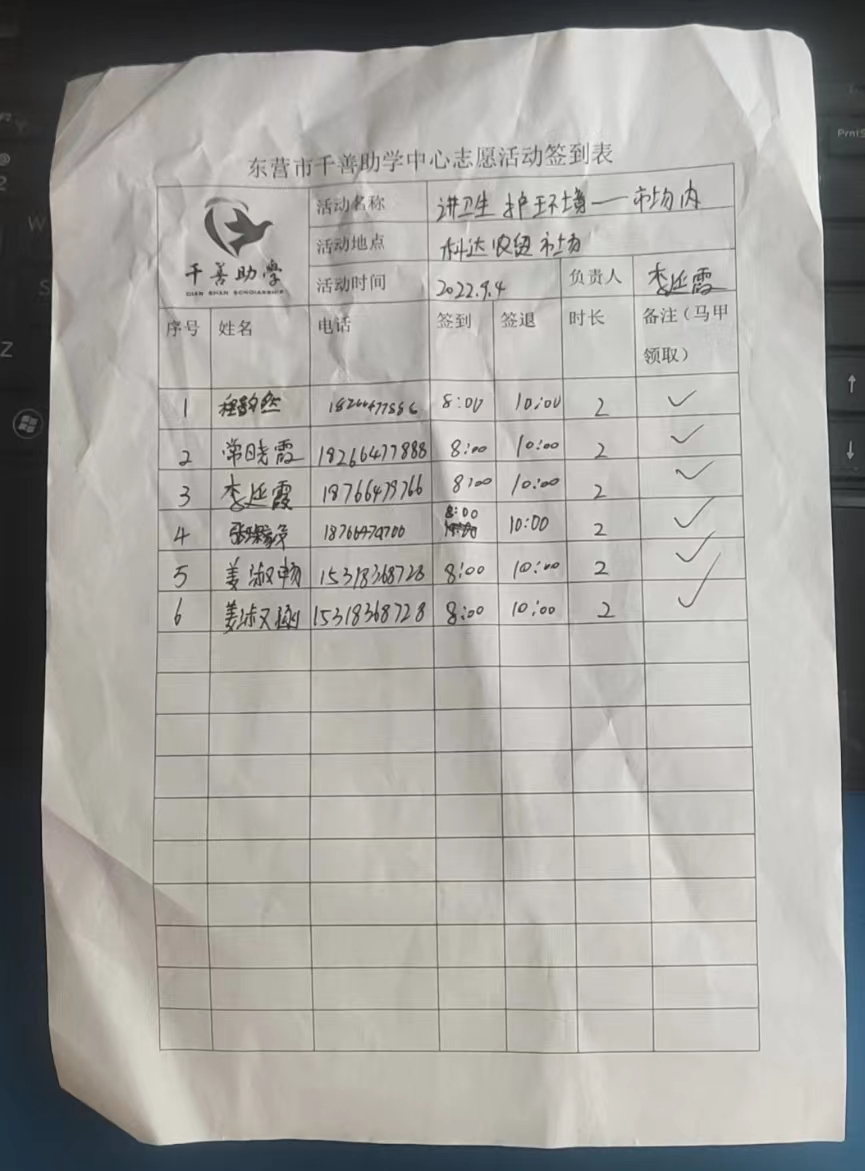 东营市千善助学中心志愿活动签到表
千善助学
QIAN SHAN SCHOLARSHIP
活动名称 讲卫生 护环境——市场内
活动地点 科达农贸市场
活动时间 2022.9.4 负责人 李延霞
序号 姓名 电话 签到 签退 时长 备注（马甲领取）
1 程韵然 8:00 10:00 2 ✓
2 常晓霞 18266477888 8:00 10:00 2 ✓
3 李延霞 18766479766 8:00 10:00 2 ✓
4 8:00 10:00 2 ✓
5 姜淑畅 15318368728 8:00 10:00 2 ✓
6 姜淑 15318368728 8:00 10:00 2 ✓